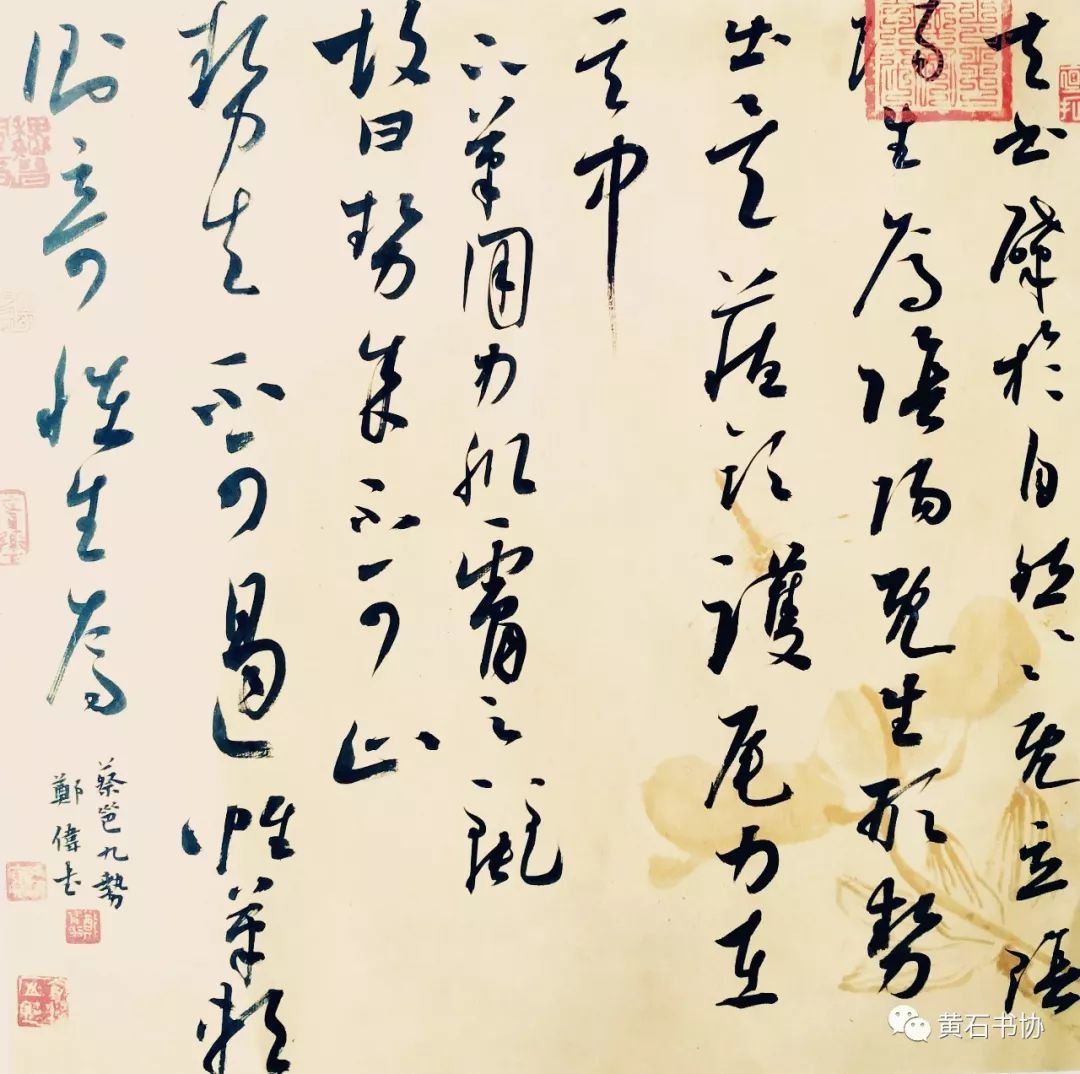 夫書肇於自然〻既立陰
陽生焉陰陽既生形勢
出矣藏頭護尾力在
其中
下筆用力肌膚之麗
故曰勢來不可止
勢去不可遏惟筆軟
則奇怪生焉
蔡邕九勢
鄭偉書
黄石书协